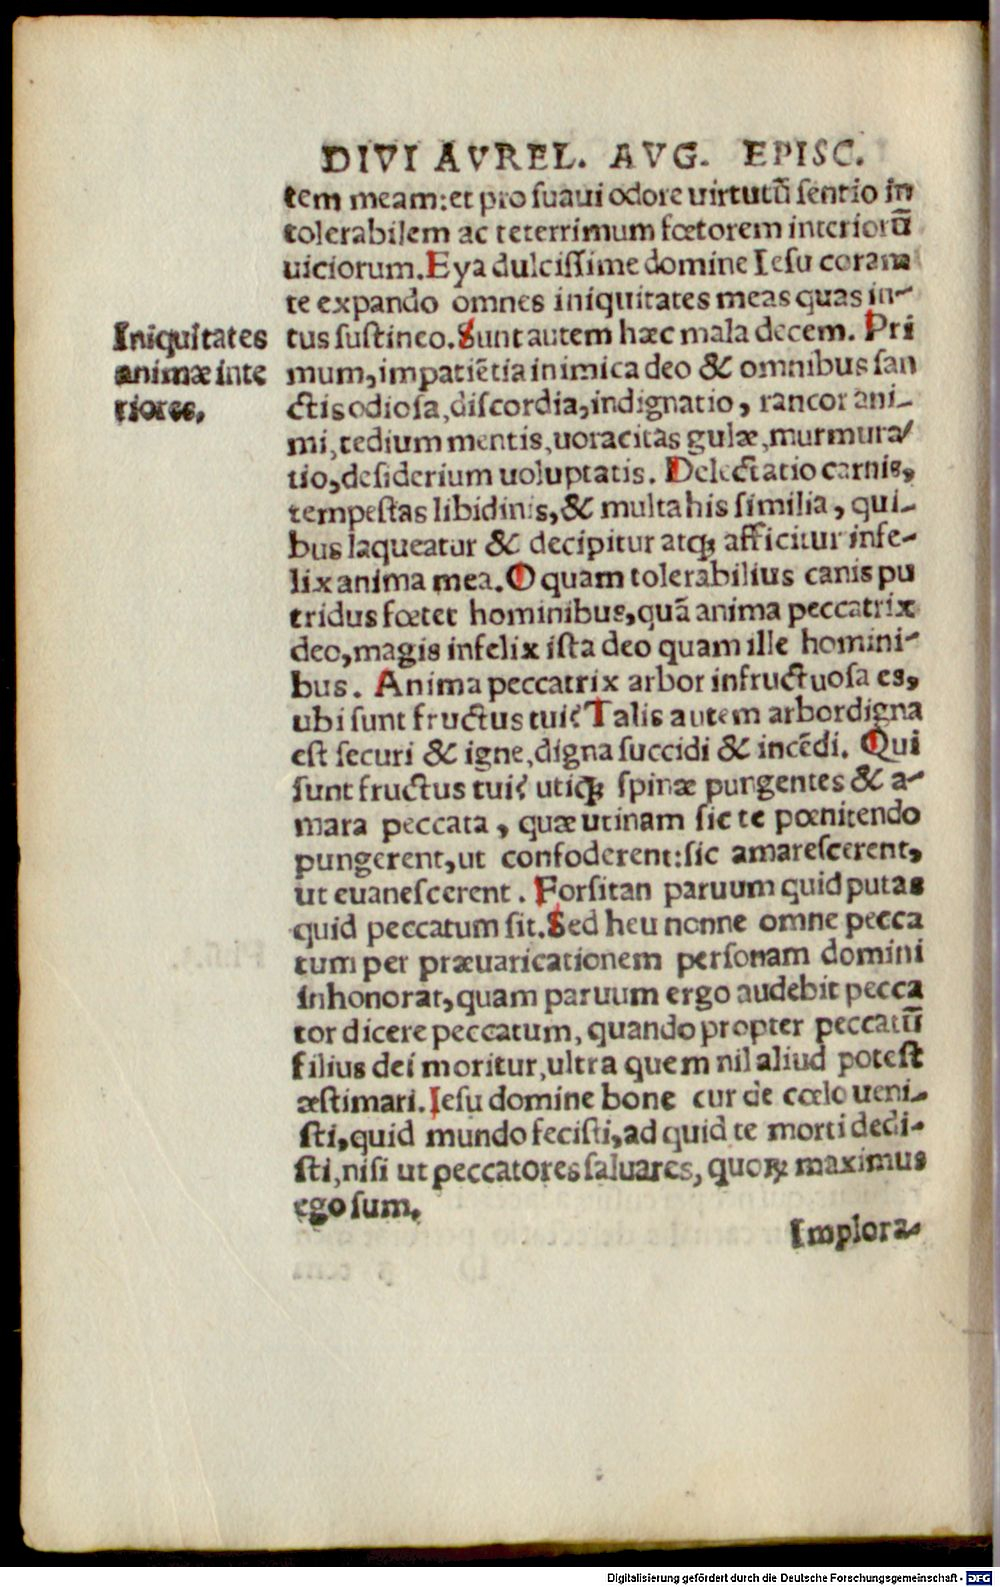 DIVI AVREL. AVG. EPISC.
tem meam:et pro suaui odore uirtutũ sentio in
tolerabilem ac teterrimum fœtorem interiorũ
uiciorum. Eya dulcissime domine Iesu coram
te expando omnes iniquitates meas quas in-
tus sustineo. Sunt autem hæc mala decem. Pri
mum, impatiẽtia inimica deo & omnibus san
ctis odiosa, discordia, indignatio, rancor ani-
mi, tedium mentis, uoracitas gulæ, murmura/
tio, desiderium uoluptatis. Delectatio carnis,
tempestas libidinis, & multa his similia, qui-
bus laqueatur & decipitur atqꝫ afficitur infe-
lix anima mea. O quam tolerabilius canis pu
tridus fœtet hominibus, quã anima peccatrix
deo, magis infelix ista deo quam ille homini-
bus. Anima peccatrix arbor infructuosa es,
ubi sunt fructus tui? Talis autem arbor digna
est securi & igne, digna succidi & incẽdi. Qui
sunt fructus tui? utiqꝫ spinæ pungentes & a-
mara peccata, quæ utinam sic te pœnitendo
pungerent, ut confoderent: sic amarescerent,
ut euanescerent. Forsitan paruum quid putas
quid peccatum sit. Sed heu nonne omne pecca
tum per præuaricationem personam domini
inhonorat, quam paruum ergo audebit pecca
tor dicere peccatum, quando propter peccatũ
filius dei moritur, ultra quem nil aliud potest
æstimari. Iesu domine bone cur de cœlo ueni-
sti, quid mundo fecisti, ad quid te morti dedi-
sti, nisi ut peccatores saluares, quoꝝ maximus
ego sum.
Implora-
Iniquitates
animæ inte
riores.
Digitalisierung gefördert durch die Deutsche Forschungsgemeinschaft - DFG